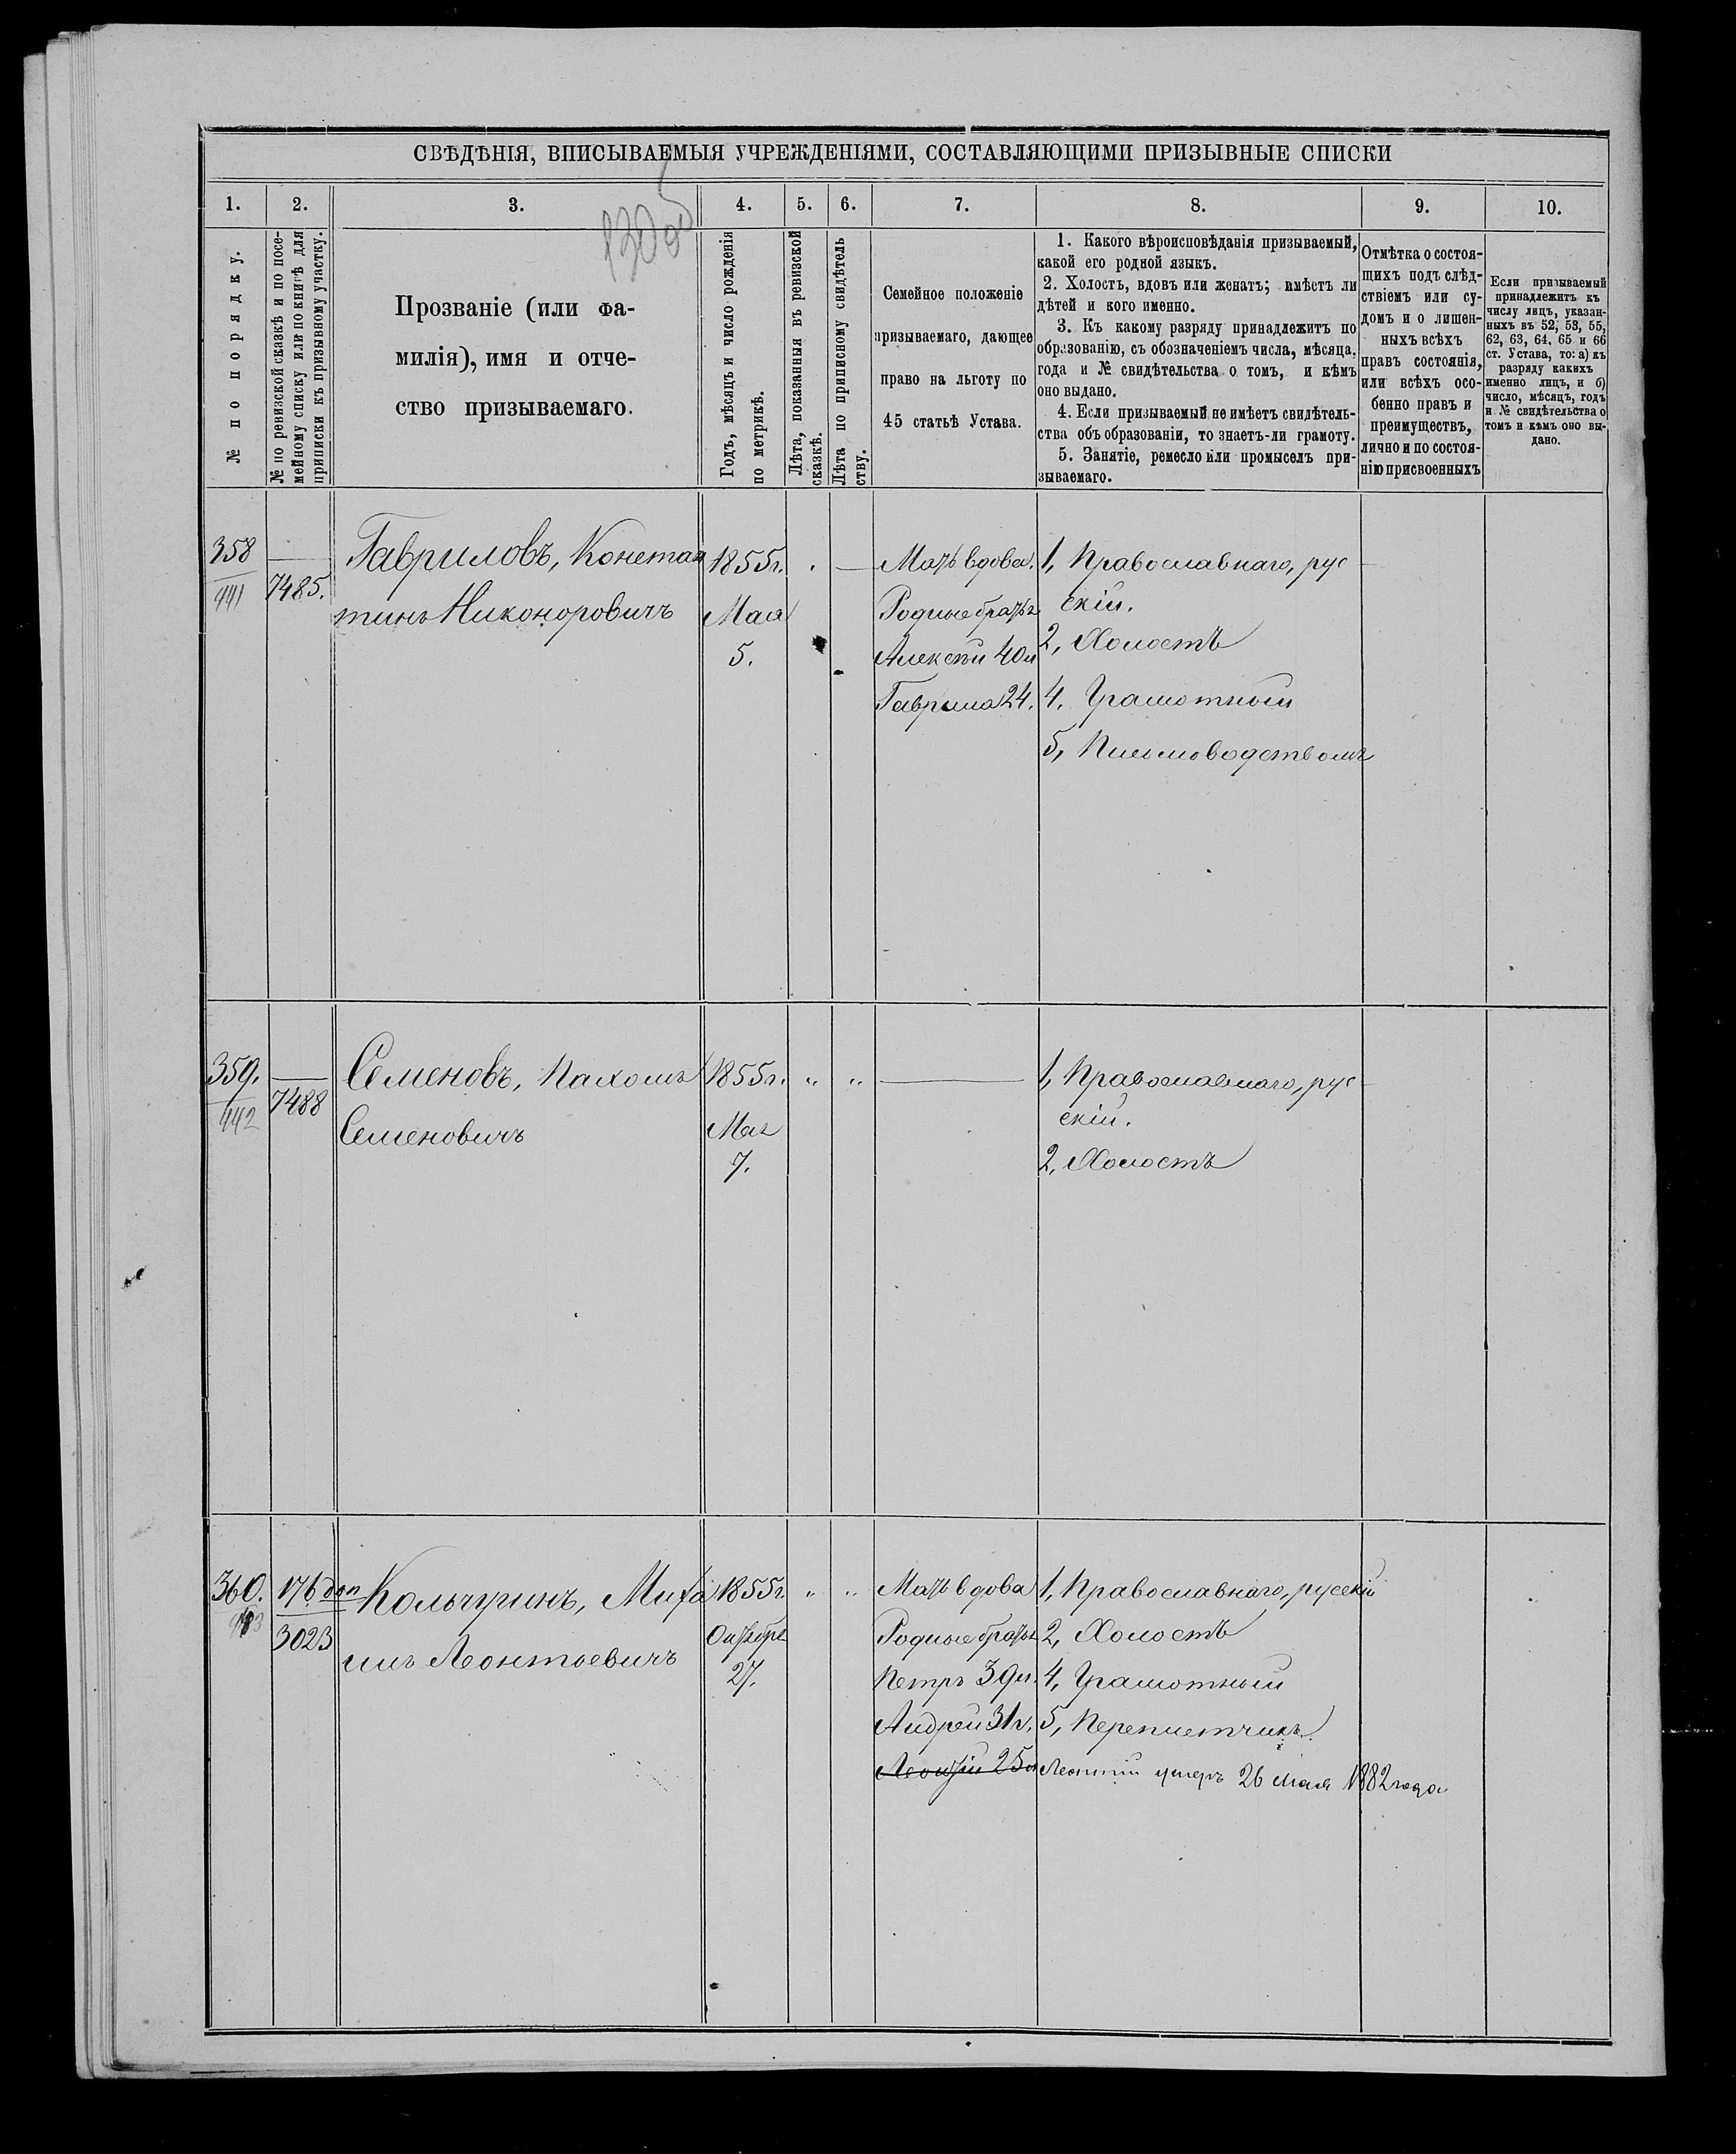 СВѢДѢНІЯ, ВПИСЫВАЕМЫЯ УЧРЕЖДЕНІЯМИ, СОСТАВЛЯЮЩИМИ ПРИЗЫВНЫЕ СПИСКИ
1. 2. 3. 4. 5. 6. 7. 8. 9. 10.
№ по порядку.
№ по ревизской сказкѣ и по посе-
мейному списку или по книгѣ для
приписки къ призывному участку.
Прозваніе (или фа-
милія), имя и отче-
ство призываемаго.
Годъ, мѣсяцъ и число рожденія
по метрикѣ.
Лѣта, показанныя въ ревизской
сказкѣ.
Лѣта по приписному свидѣтель
ству.
Семейное положеніе
призываемаго, дающее
право на льготу по
45 статьѣ Устава.
1. Какого вѣроисповѣданія призываемый,
какой его родной языкъ.
2. Холостъ, вдовъ или женатъ; имѣетъ ли
дѣтей и кого именно.
3. Къ какому разряду принадлежитъ по
образованію, съ обозначеніемъ числа, мѣсяца,
года и № свидѣтельства о томъ, и кѣмъ
оно выдано.
4. Если призываемый не имѣетъ свидѣтель-
ства объ образованіи, то знаетъ-ли грамоту.
5. Занятіе, ремесло или промыселъ при-
зываемаго.
Отмѣтка о состоя-
щихъ подъ слѣд-
ствіемъ или су-
домъ и о лишен-
ныхъ всѣхъ
правъ состоянія,
или всѣхъ осо-
бенно правъ и
преимуществъ,
лично и по состоя-
нію присвоенныхъ
Если призываемый
принадлежитъ къ
числу лицъ, указан-
ныхъ въ 52, 53, 55,
62, 63, 64, 65 и 66
ст. Устава, то: а) къ
разряду какихъ
именно лицъ, и б)
число, мѣсяцъ, годъ
и № свидѣтельства о
томъ и кѣмъ оно вы-
дано.
358
441
7485.
Гавриловъ, Констан
тинъ Никоноровичъ
1855г.
Мая
5.
Мать вдова.
Родные братья
Алексѣй 40л
Гаврила 24.
1, Православнаго, рус
скій.
2, Холостъ
4, Грамотный
5, Письмоводствомъ
359.
442
7488
Семеновъ, Пахомъ
Семеновичъ
1855г.
Мая
7.
1, Православнаго, рус
скій.
2, Холостъ
360.
443
176 доп
3023
Кольчуринъ, Миха
илъ Леонтьевичъ
1855г
Октября
27.
Мать вдова
Родные братья
Петръ 39л.
Андрей 31г.
Леонтій 25л
1, Православнаго, русскій
2, Холостъ
4, Грамотный
5, Переписчикъ.
Леонтій умеръ 26 Мая 1882 года